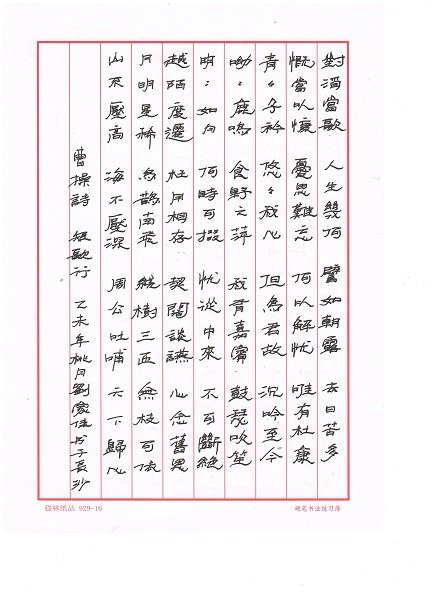 對酒當歌 人生幾何 譬如朝露 去日苦多
慨當以慷 憂思難忘 何以解忧 唯有杜康
青々子衿 悠々我心 但為君故 沉吟至今
呦：鹿鳴 食野之苹 我有嘉賓 鼓瑟吹笙
明：如月 何時可掇 忧從中來 不可斷絕
越陌度遷 枉用相存 契闊談讌 心念舊恩
月明星稀 烏鵲南飛 繞樹三匝 無枝可依
山不壓高 海不壓深 周公吐哺 天下歸心
曹操詩 短歌行 乙未年桃月劉家佳书于長沙
林纸品 929-16
硬笔书法练习簿